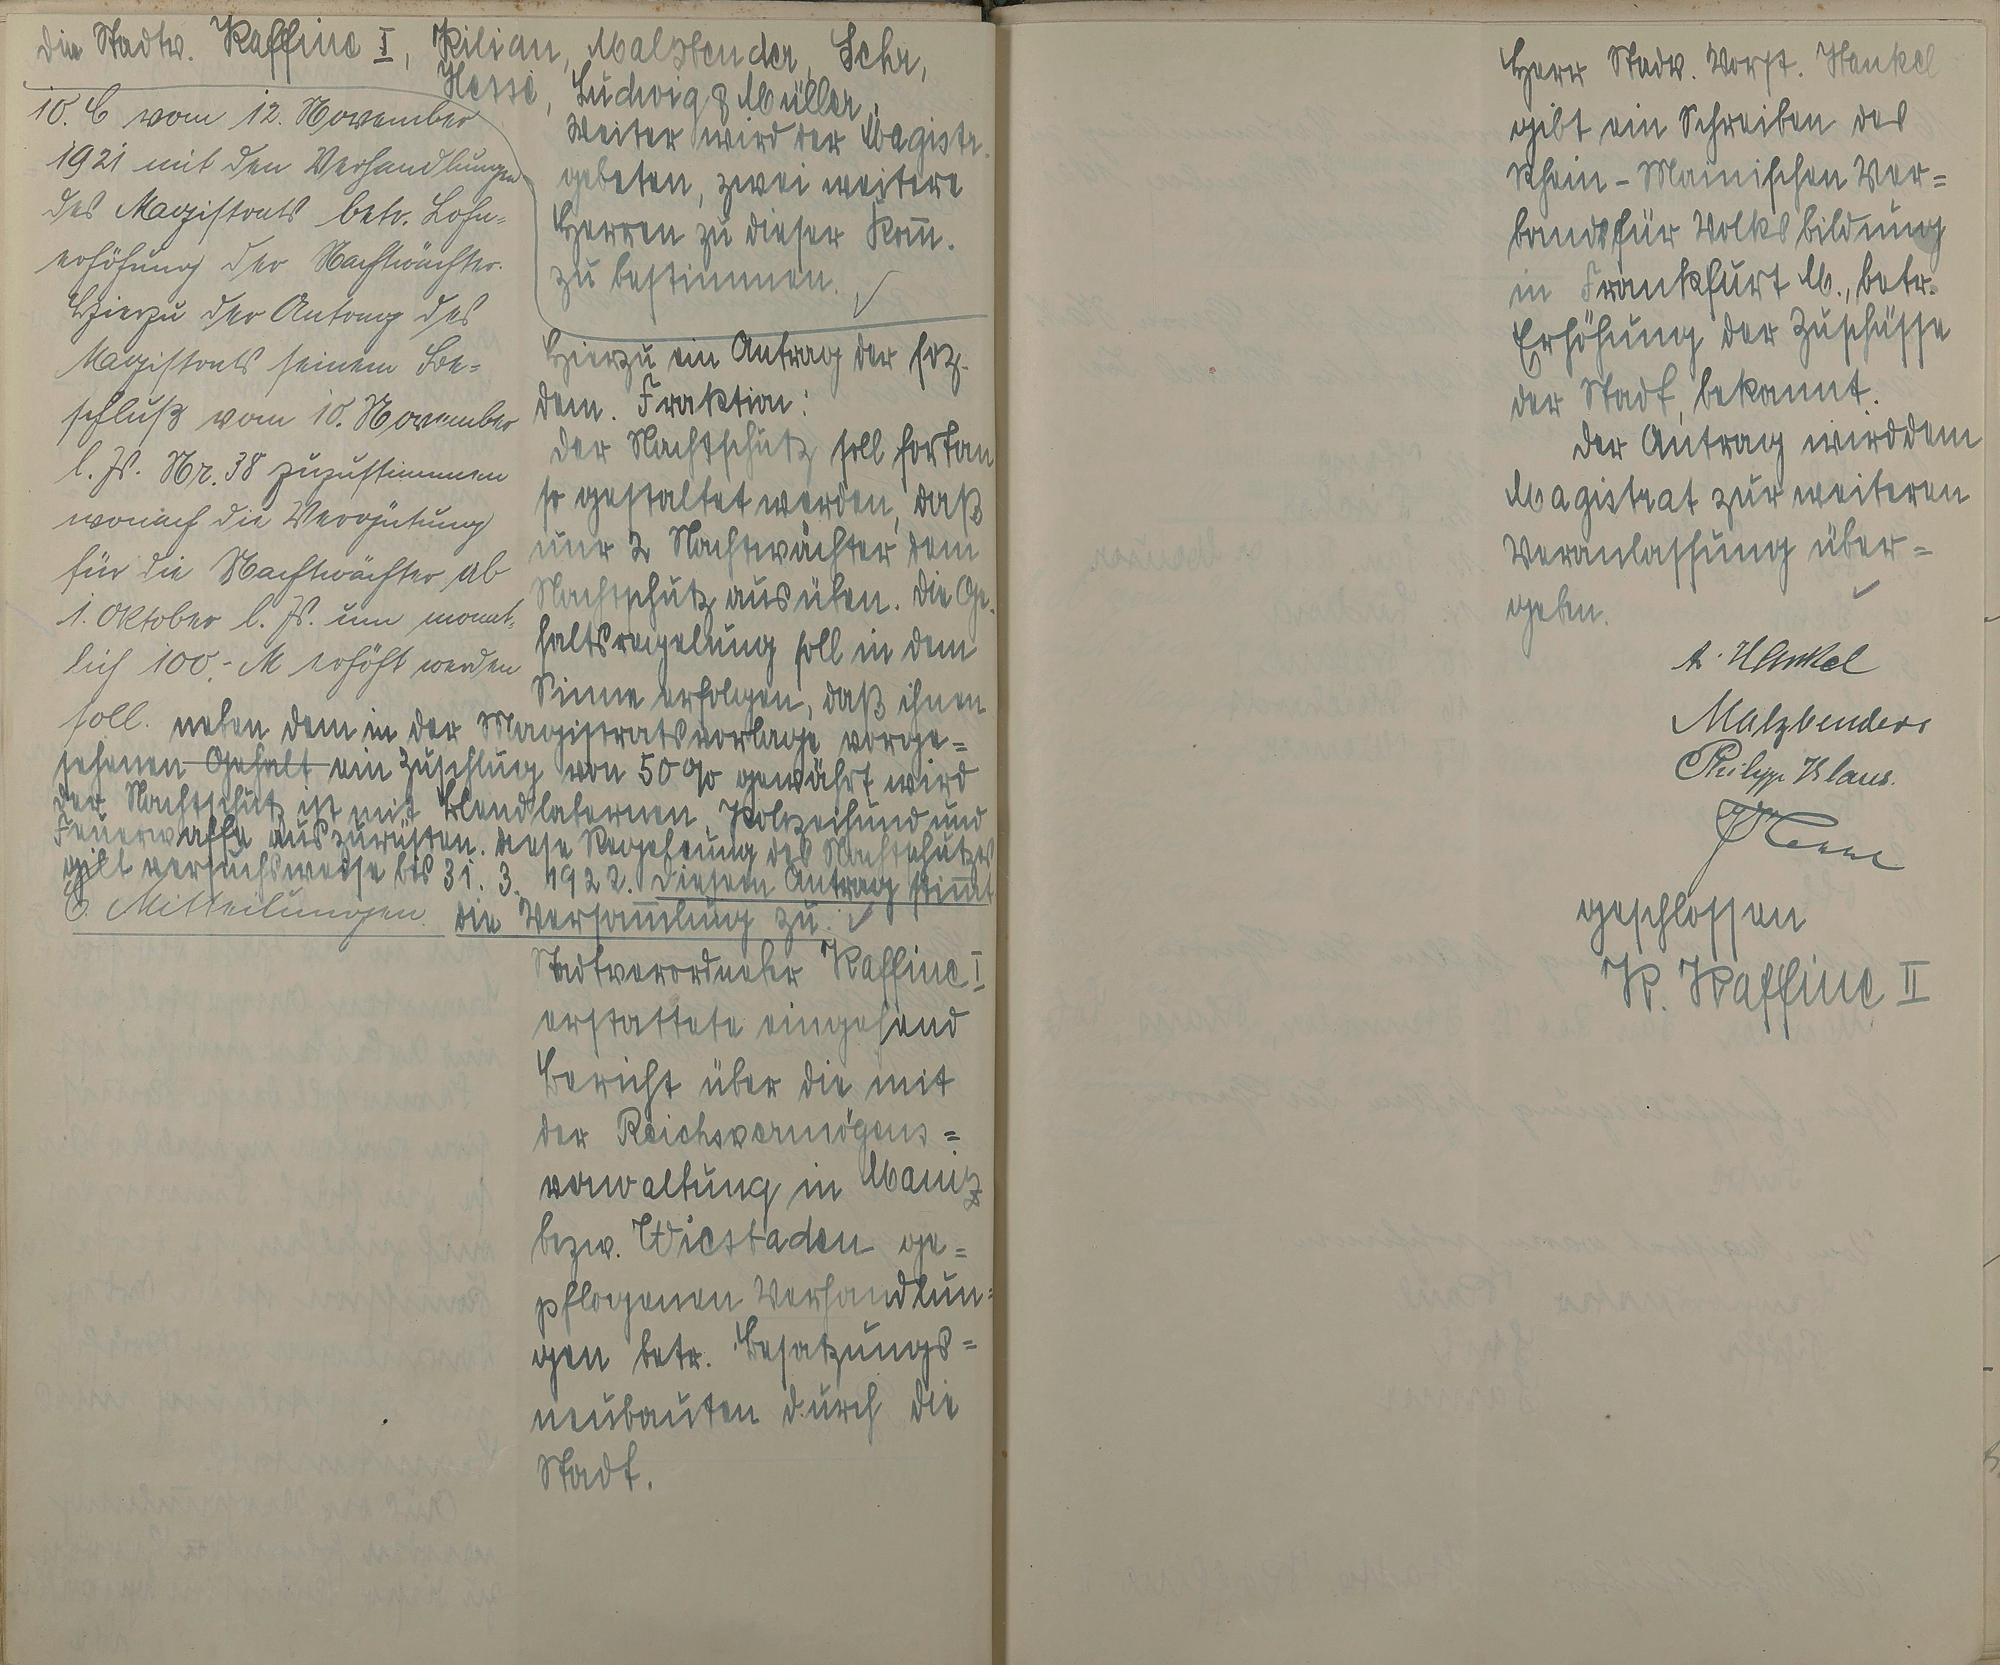 die Stadtv. Kaffine I, Kilian, Malzbender, Sehr,
Hesse, Ludwig & Müller.
Weiter wird der Magistr.
gebeten, zwei weitere
Herren zu dieser Kom̄.
zu bestimmen.
10. C vom 12. November
1921 mit den Verhandlungen
des Magistrats betr. Lohn=
erhöhung der Nachtwächter.
Hierzu der Antrag des
Magistrats seinem Be=
schluß vom 10. November
l. Js. Nr. 38 zuzustimmen
wonach die Vergütung
für die Nachtwächter ab
1. Oktober l. Js. um monat=
lich 100,- M erhöht werden
soll.
Hierzu ein Antrag der soz.
dem. Fraktion:
Der Nachtschutz soll fortan
so gestaltet werden, daß
nur 2 Nachtwächter dem
Nachtschutz ausüben. Die Ge=
haltsregelung soll in dem
Sinne erfolgen, daß ihnen
neben dem in der Magistratsvorlage vorge=
sehenen Gehalt ein Zuschlag von 50 % gewährt wird
der Nachtschutz ist mit Blendlaternen, Polizeihund und
Feuerwaffe auszurüsten. Diese Regelung des Nachtschutzes
gilt versuchsweise bis 31. 3. 1922. Diesem Antrag stim̄t
die Versam̄lung zu.
C. Mitteilungen.
Stadtverordneter Kaffine I
erstattete eingehend
Bericht über die mit
der Reichsvermögens=
verwaltung in Mainz
bezw. Wiesbaden ge=
pflogenen Verhandlun=
gen betr. Besatzungs=
neubauten durch die
Stadt.
Herr Stadv. Vorst. Henkel
gibt ein Schreiben des
Rhein-Mainischen Ver=
bands für Volksbildung
in Frankfurt M., betr.
Erhöhung der Zuschüsse
der Stadt, bekannt.
Der Antrag wird dem
Magistrat zur weiteren
Veranlassung über=
geben.
A. Henkel
Malzbender
Philipp Klaus.
geschlossen
K. Kaffine II